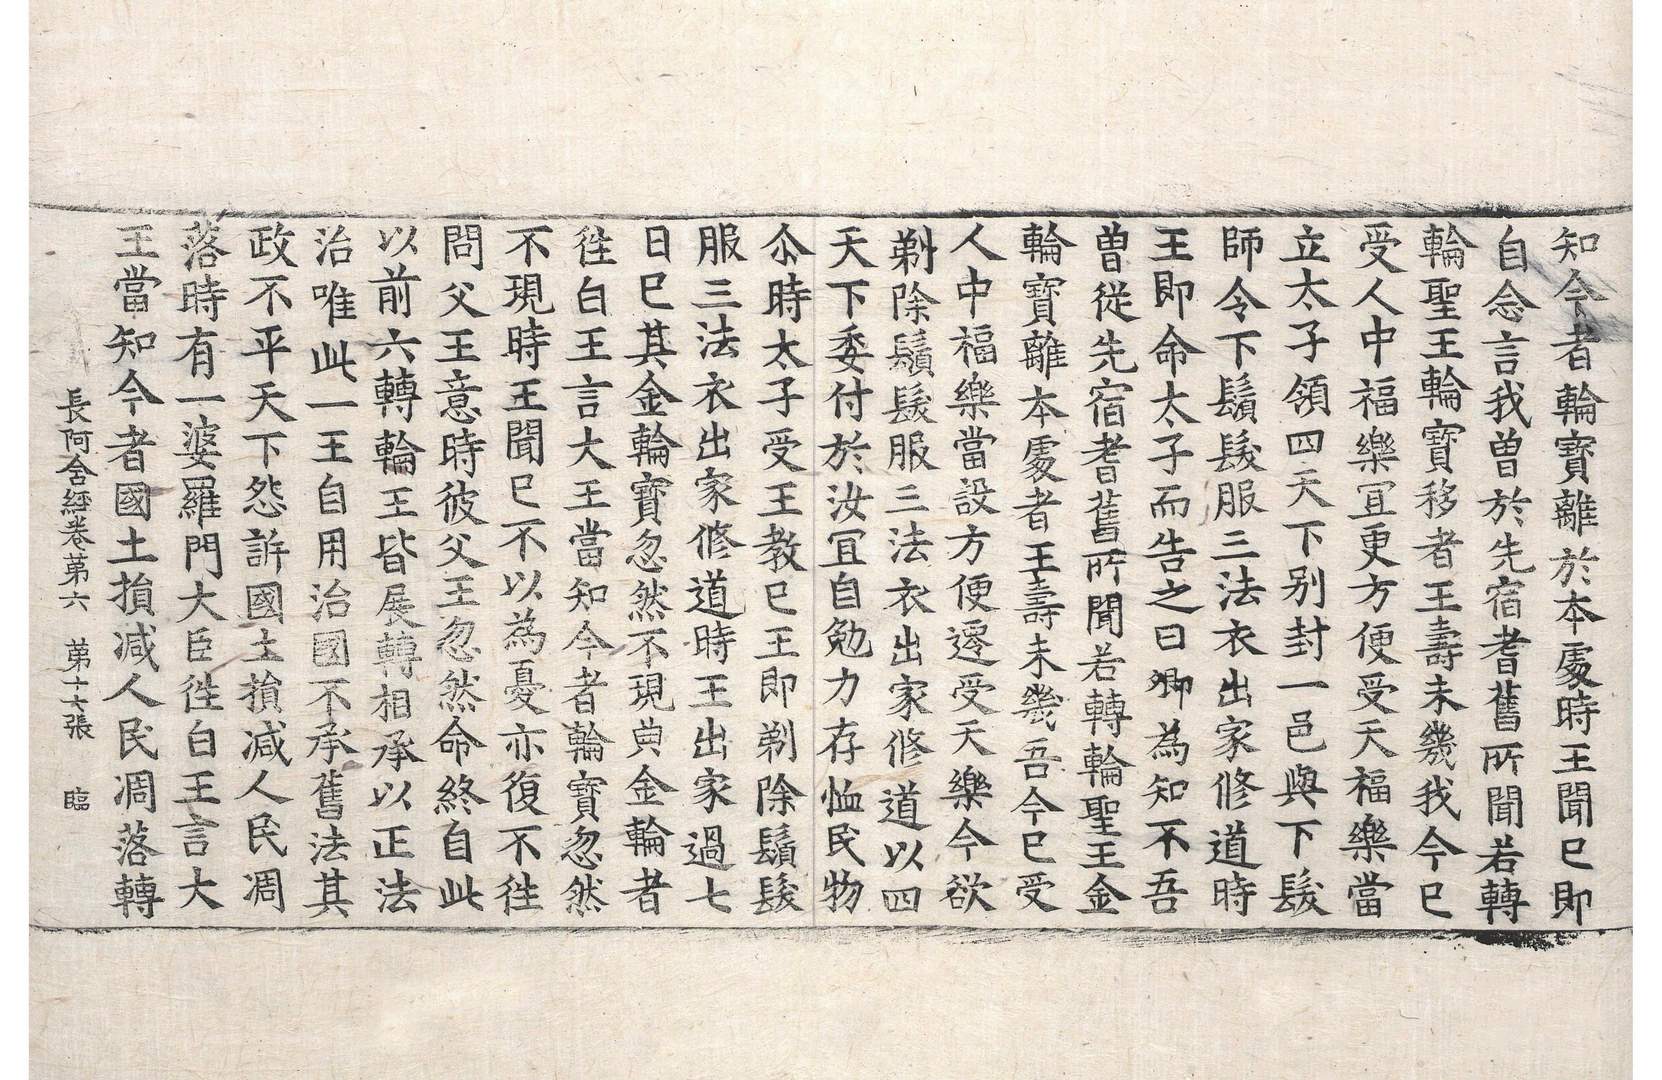 知今者輪寶離於本處時王聞已即
自念言我曾於先宿耆舊所聞若轉
輪聖王輪寶移者王壽未幾我今已
受人中福樂冝更方便受天福樂當
立太子領四天下別封一邑與下髮
師令下鬚髮服三法衣出家修道時
王即命太子而告之曰卿為知不吾
曾從先宿耆舊所聞若轉輪聖王金
輪寶離本處者王壽未幾吾今已受
人中福樂當設方便遷受天樂今欲
剃除鬚髮服三法衣出家修道以四
天下委付於汝冝自勉力存恤民物
尒時太子受王教已王即剃除鬚髮
服三法衣出家修道時王出家過七
日已其金輪寶忽然不現典金輪者
徃白王言大王當知今者輪寶忽然
不現時王聞已不以為憂亦復不徃
問父王意時彼父王忽然命終自此
以前六轉輪王皆展轉相承以正法
治唯此一王自用治國不承舊法其
政不平天下怨訴國土損減人民凋
落時有一婆羅門大臣徃白王言大
王當知今者國土損減人民凋落轉
長阿含經卷苐六 苐十七張 臨